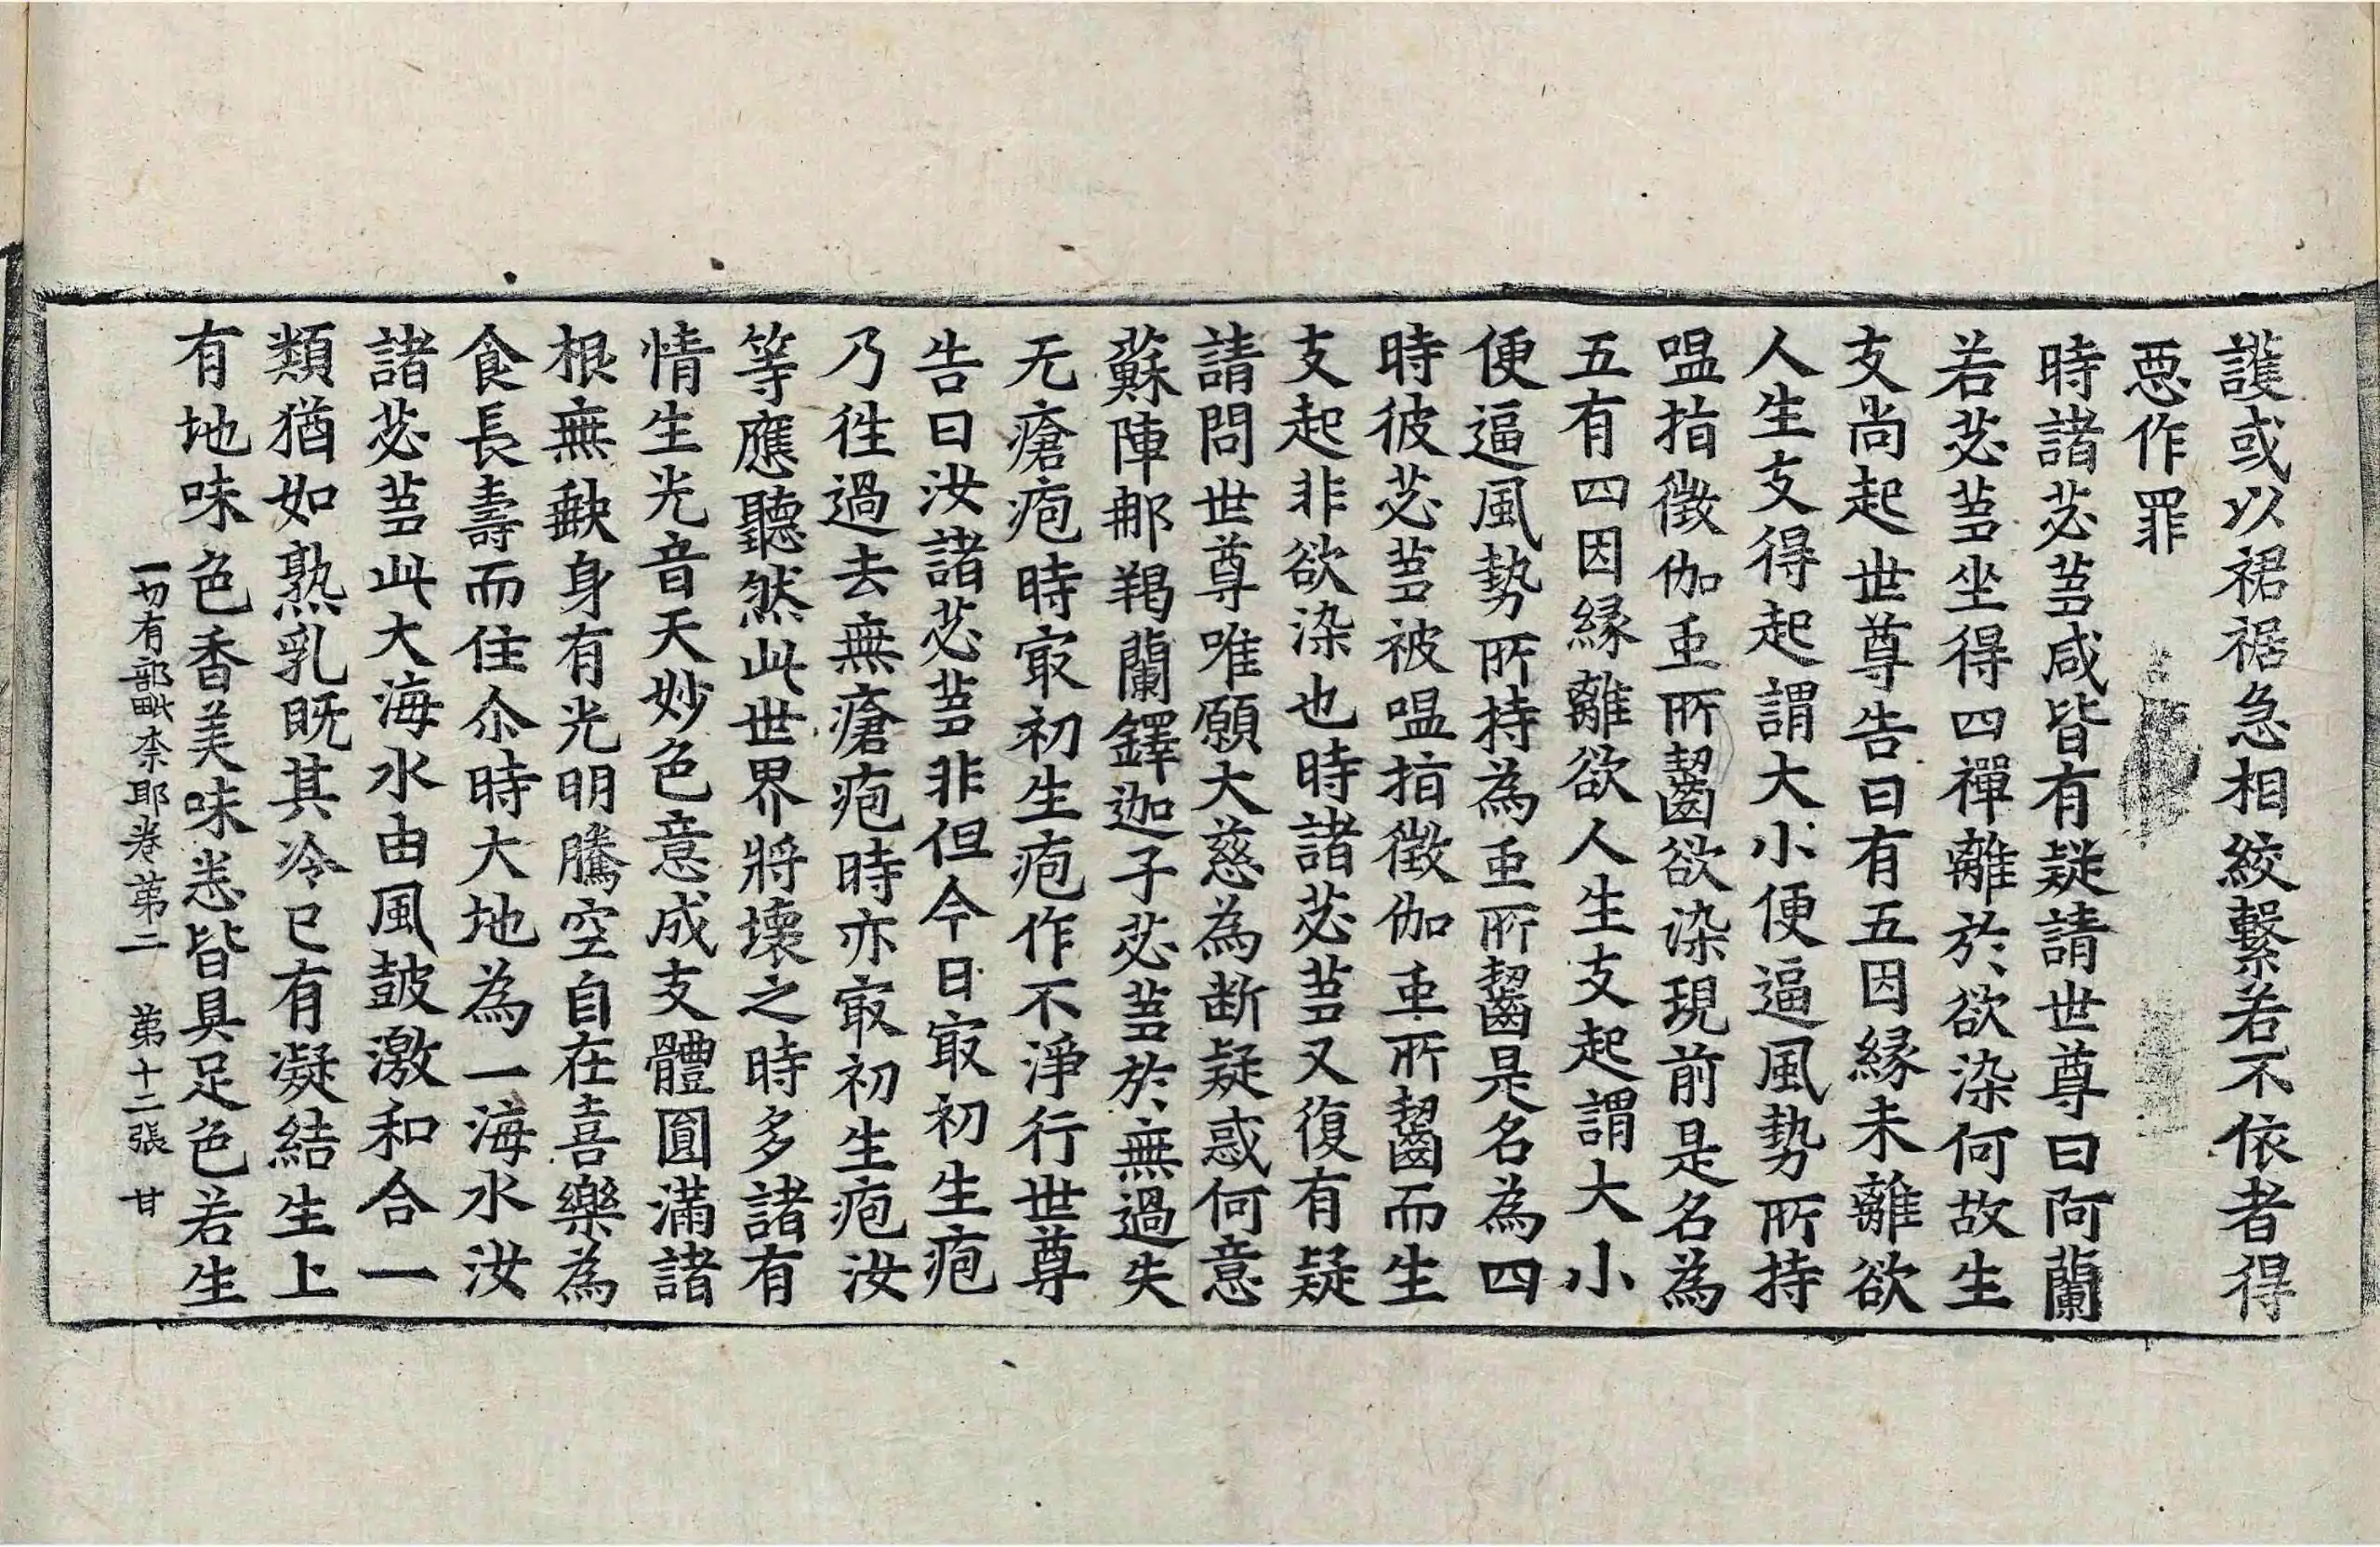 護或以裙裾急相絞繫若不依者得
惡作罪
時諸苾芻咸皆有疑請世尊曰阿蘭
若苾芻坐得四禪離於欲染何故生
支尚起世尊告曰有五因緣未離欲
人生支得起謂大小便逼風勢所持
嗢指徵伽虫所齧欲染現前是名為
五有四因緣離欲人生支起謂大小
便逼風勢所持為虫所齧是名為四
時彼苾芻被嗢指徵伽虫所齧而生
支起非欲染也時諸苾芻又復有疑
請問世尊唯願大慈為断疑惑何意
蘇陣那羯蘭鐸迦子苾芻於無過失
无瘡疱時㝡初生疱作不淨行世尊
告曰汝諸苾芻非但今日㝡初生疱
乃往過去無瘡疱時亦㝡初生疱汝
等應聽然此世界將壞之時多諸有
情生光音天妙色意成支體圓滿諸
根無缺身有光明騰空自在喜樂為
食長壽而住尒時大地為一海水汝
諸苾芻此大海水由風鼓激和合一
類猶如熟乳既其冷已有凝結生上
有地味色香美味悉皆具足色若生
一切有部毗奈耶卷第二 第十二張 甘